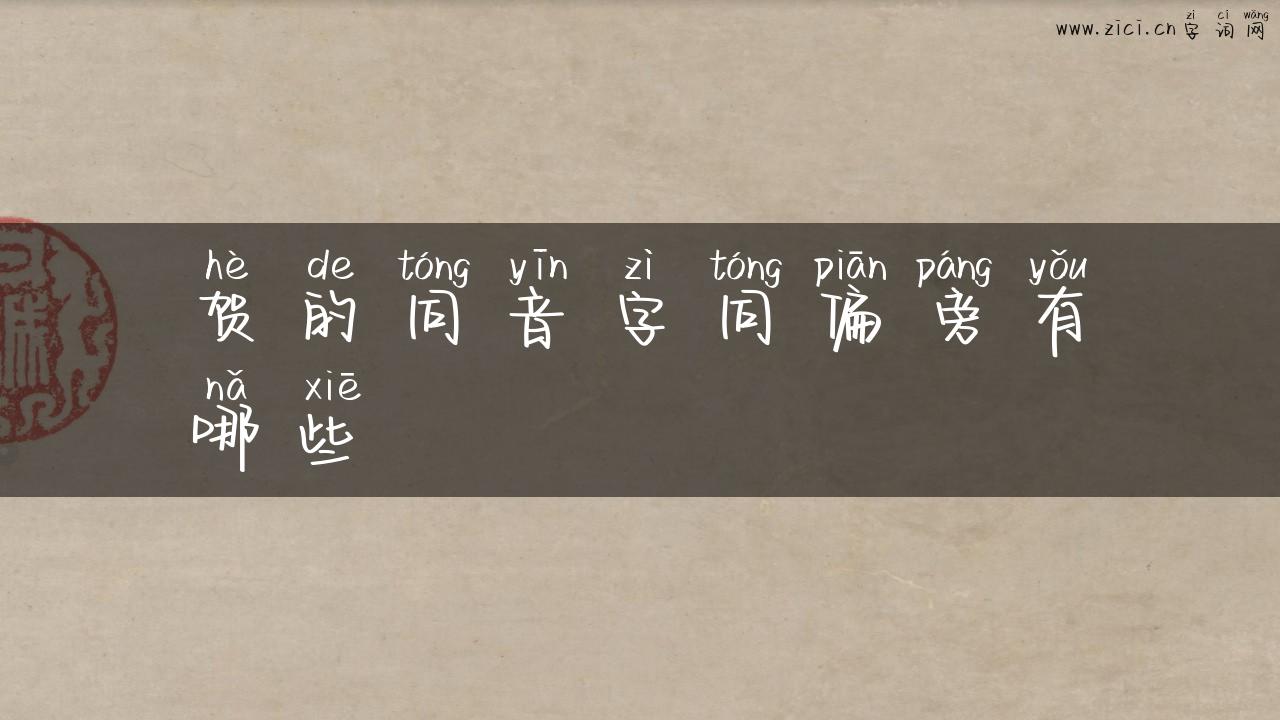 zì cí wǎng
www.zici.cn 字词网
hè de tóng yīn zì tóng piān páng yǒu
贺的同音字同偏旁有
nǎ xiē
哪些